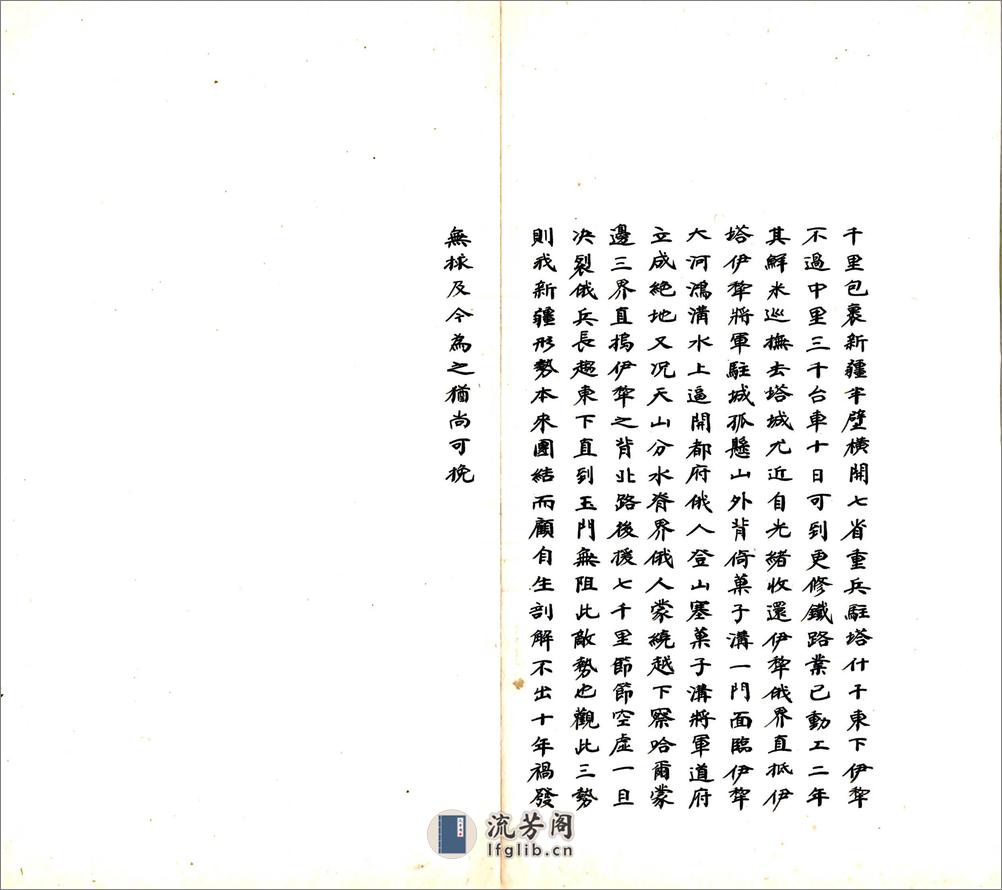 千里包裹新疆半壁橫開七省重兵駐塔什干東下伊犂
不過中里三千台車十日可到更修鐵路業已動工二年
其鮮米巡撫去塔城尤近自光緒收還伊犂俄界直抵伊
塔伊犂將軍駐城孤懸山外背倚菓子溝一門面臨伊犂
大河鴻溝水上逼開都府俄人登山塞菓子溝將軍道府
立成絕地又况天山分水脊界俄人蒙繞越下察哈爾蒙
邊三界直搗伊犂之背北路後援七千里節節空虛一旦
决裂俄兵長趨東下直到玉門無阻此敵勢也觀此三勢
則我新疆形勢本來團結而顧自生剖解不出十年禍發
無捄及今為之猶尚可挽
流芳阁
lfglib.cn